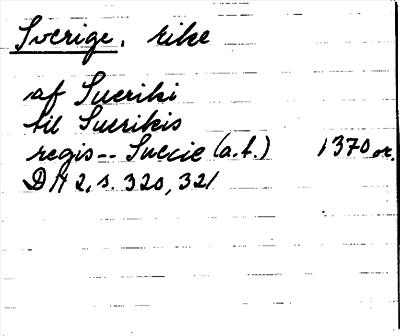 Sverige, rike
af Sueriki
til Suerikis
regis -- Suecie (a.t.) 1370 or.
DN 2, s. 320, 321